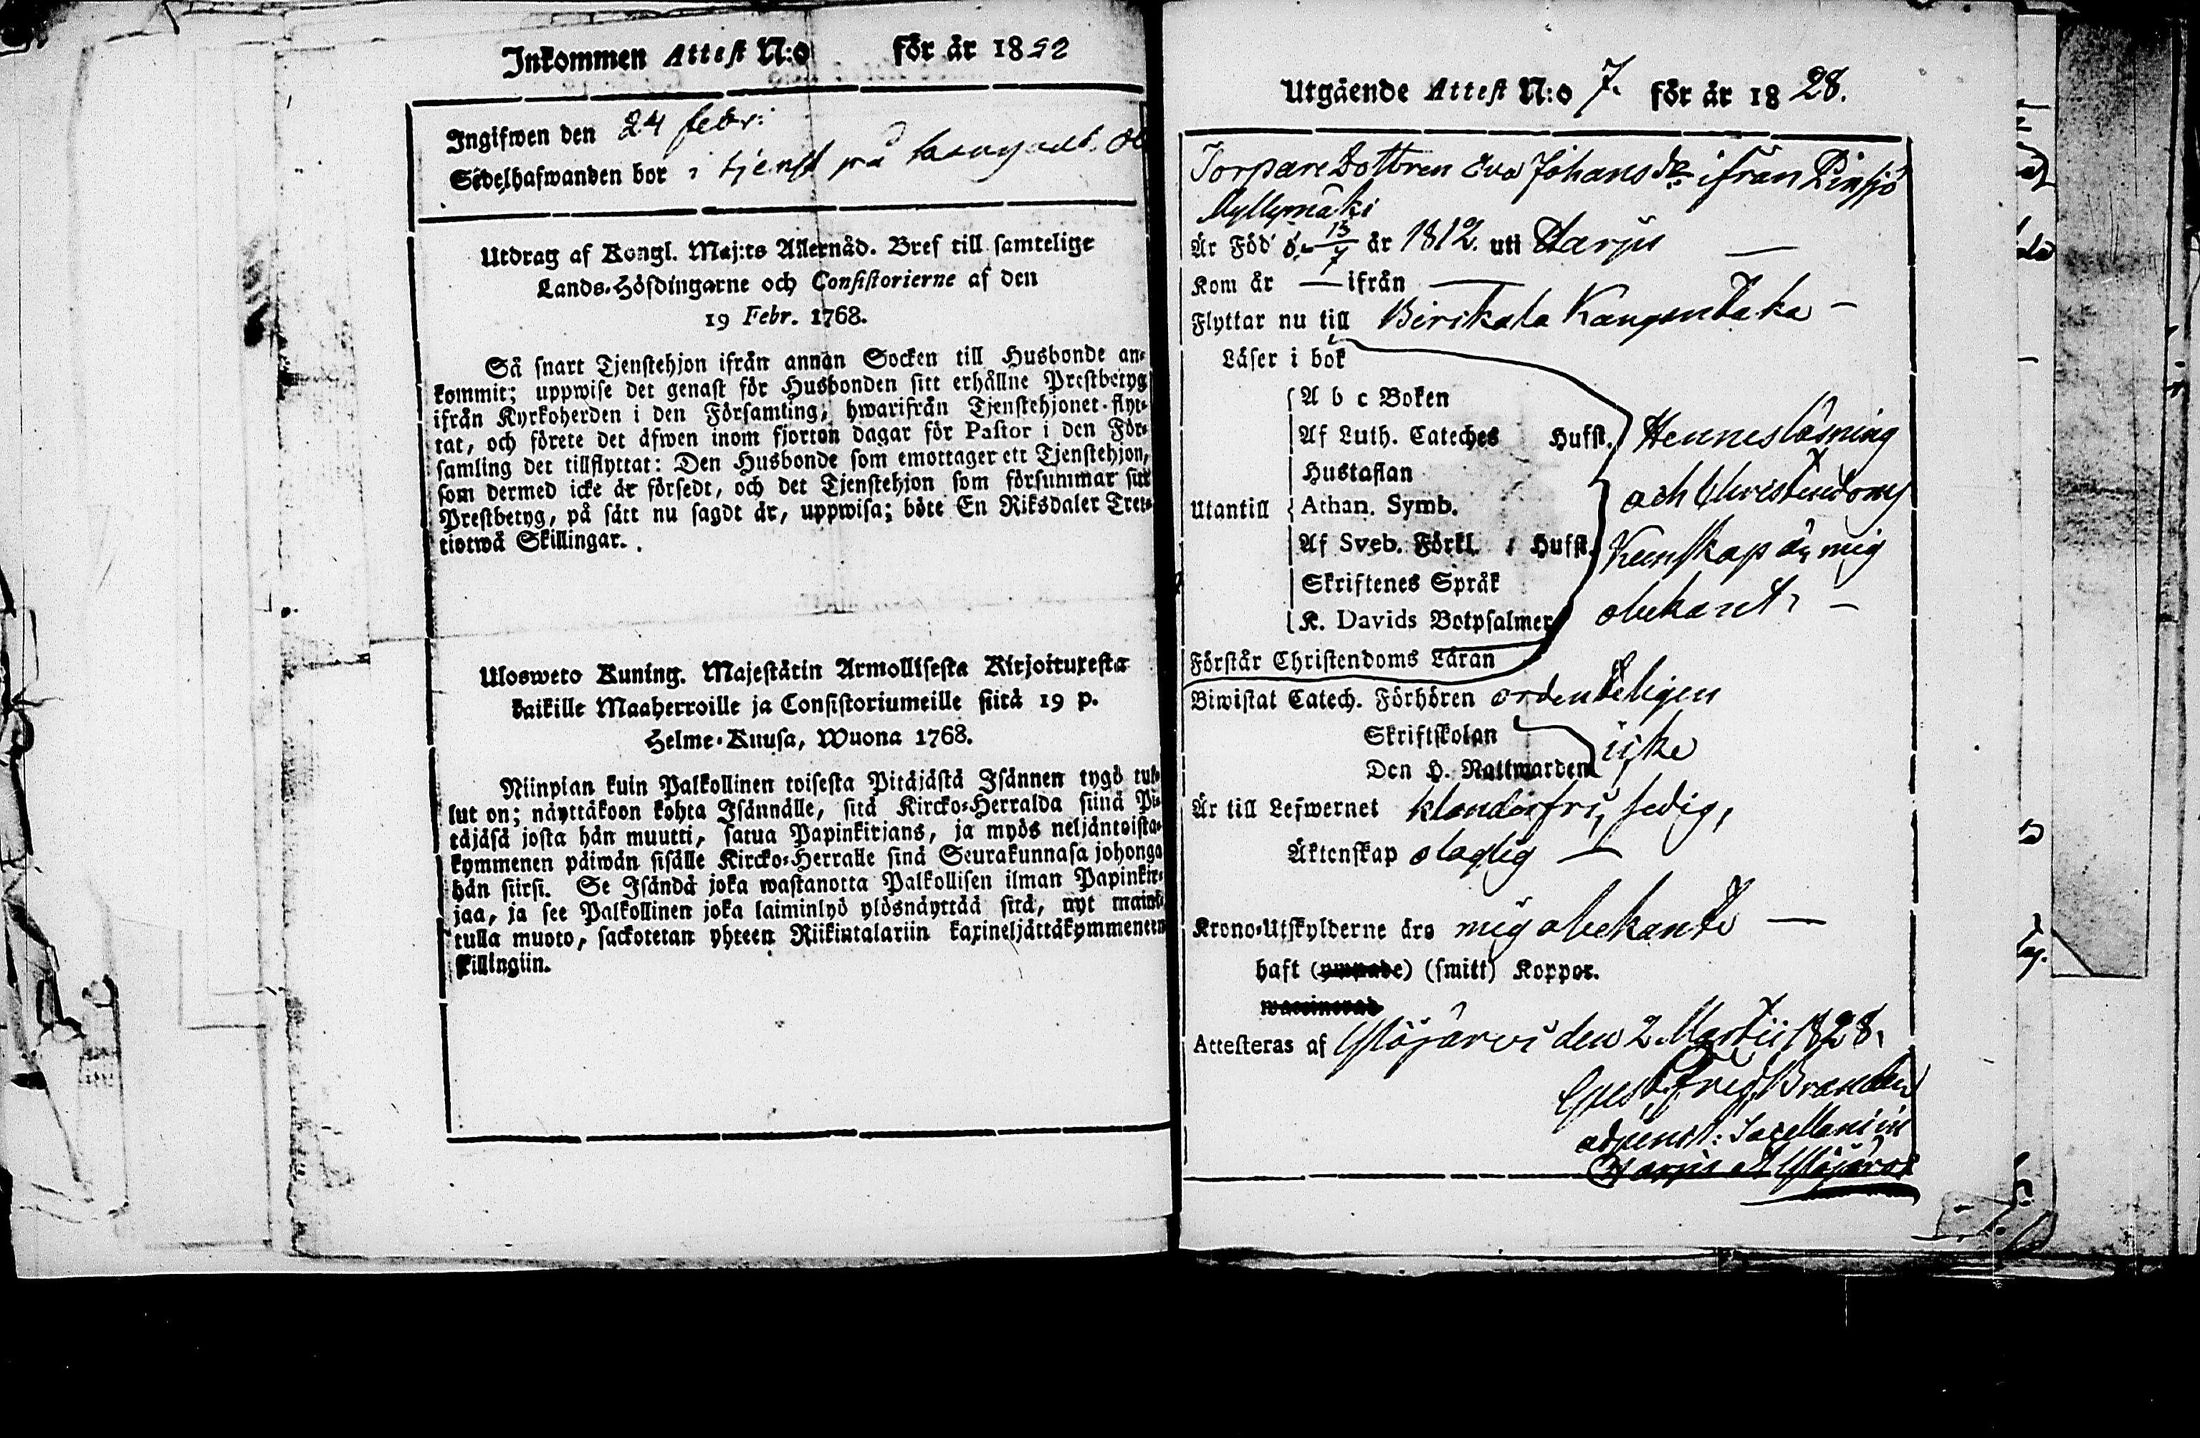 Inkommen Attest N:o för år 1852
Ingifwen den 24 febr:
Sedelhafwanden bor i tjenst på
Utdrag af Kongl. Maj:ts Allernåd. Bref till samtelige
Lands-Höfdingarne och Consistorierne af den
19 Febr. 1768.
Så snart Tjenstehjon ifrån annan Socken till Husbonde an-
kommit; uppwise det genast för Husbonden sitt erhållne Prestbetyg
ifrån Kyrkoherden i den Församling, hwarifrån Tjenstehjonet flyt-
tat, och förete det äfwen inom fjorton dagar för Pastor i den För-
samling det tillflyttat: Den Husbonde som emottager ett Tjenstehjon,
som dermed icke är försedt, och det Tjenstehjon som försummar sitt
Prestbetyg, på sätt nu sagdt är, uppwisa; böte En Riksdaler Tret-
tiotwå Skillingar.
Ulosweto Kuning. Majestätin Armollisesta Kirjoituxesta
kaikille Maaherroille ja Consistoriumeille siitä 19 p.
Helme-Kuusa, Wuona 1768.
Niinpian kuin Palkollinen toisesta Pitäjästä Isännen tygö tul-
lut on; näyttäkoon kohta Isännälle, sitä Kircko-Herralda siinä Pi-
täjäsä josta hän muutti, satua Papinkirjans, ja myös neljäntoista-
kymmenen päiwän sisälle Kircko-Herralle sinä Seurakunnasa johonga
hän siirsi. Se Isändä joka wastanotta Palkollisen ilman Papinkir-
jaa, ja see Palkollinen joka laiminlyö ylösnäyttää sitä, nyt mainit-
tulla muoto, sackotetan yhteen Riikintalariin kaxineljättäkymmeneen
skillingiin.
Utgående Attest N:o 7. för år 1828.
Torpare Dottren Eva Johans dr ifrån Pinsjö
Myllymäki
Är Född d. 13/7 år 1812. uti Harju —
Kom år — ifrån —
Flyttar nu till Birkala Kangentaka —
Läser i bok
A b c Boken
Af Luth. Cateches Hufst. Hennes läsning
Hustaflan
och Christendoms
Utantill Athan. Symb.
Af Sveb. Förkl. Hufst. Kunskap är mig
Skriftenes Språk
K. Davids Botpsalmer obekant, —
Förstår Christendoms Läran
Biwistat Catech. Förhören ordenteligen
Skriftskolan
icke
Den H. Nattwarden
Är till Lefwernet klanderfri, ledig,
Äktenskap olaglig —
Krono-Utskylderne äro mig obekante —
haft (ympade) (smitt) Koppor.
waccinerad
Attesteras af Ylöjärvi den 2 Martii 1828.
Gust. Fred. Brander
adjunct: Sacellani in
Harju et Ylöjärvi